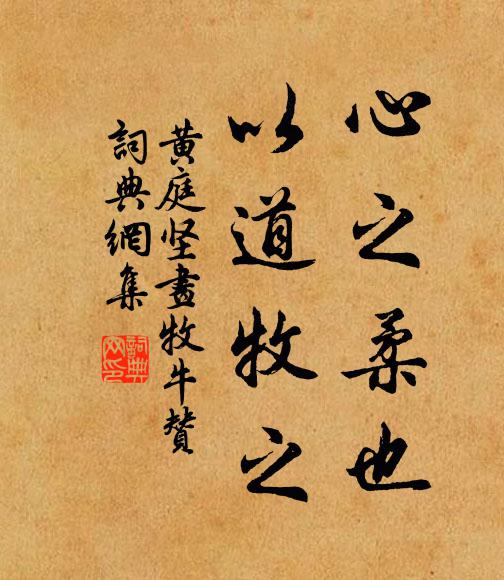 心之柔也
以道牧之
黄庭坚畫牧牛贊
詞典網集
詞典
网印